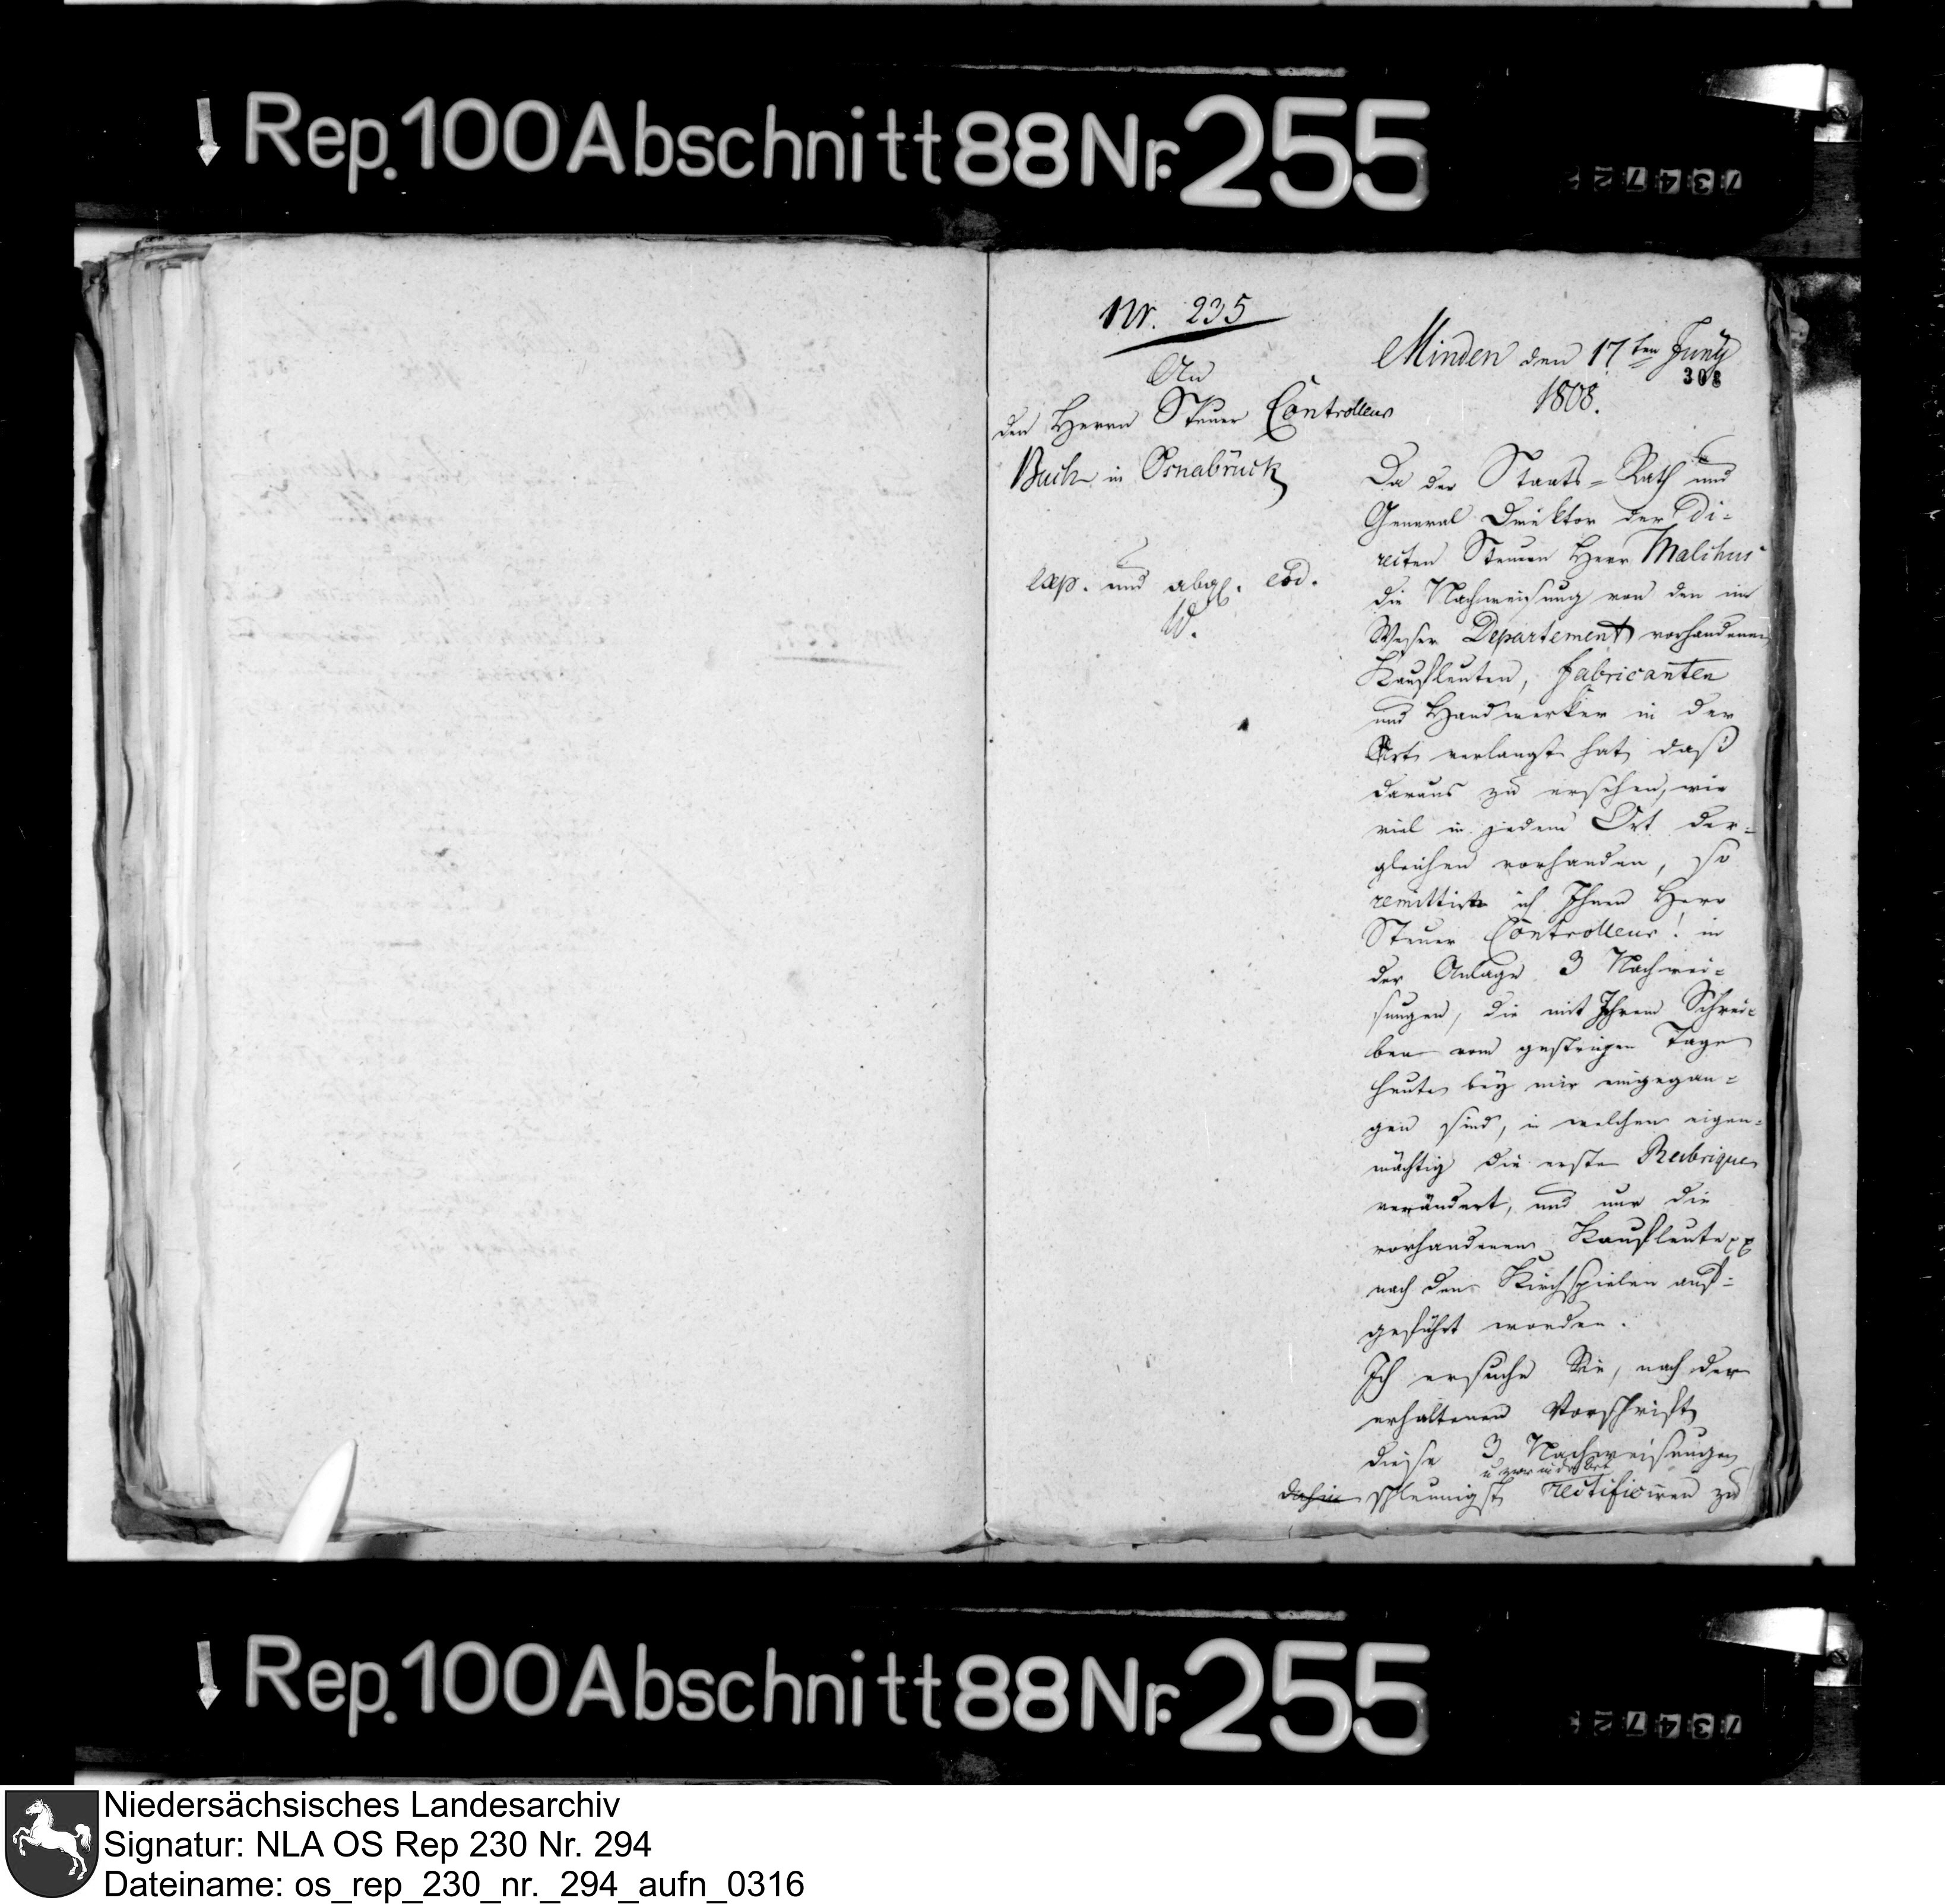 Rep. 100 Abschnitt 88 Nr. 255
Nr. 235
An
den Herrn Steuer Controlleur
Buch in Osnabrück
exp. und abgl. eod.
W.
Minden den 17ten Juny
308
1808.
Da der Staats-Rath und
General Direktor der Di-
recten Steuern Herr Malchus
die Nachweisung von den im
Weser Departement vorhandenen
Kaufleuten, Fabricanten
und Handwerker in der
Art verlangt hat, daß
daraus zu ersehen, wie
viel in jedem Ort der-
gleichen vorhanden, so
remittire ich Ihnen Herr
Steuer Controlleur! in
der Anlage 3 Nachwei-
sungen, die mit Ihrem Schrei-
ben vom gestrigen Tage
heute bey mir eingegan-
gen sind, in welchen eigen-
mächtig die erste Rubrique
verändert, und nur die
vorhandenen Kaufleute pp
nach den Kirchspielen auf-
geführt worden.
Ich ersuche Sie, nach der
erhaltenen Vorschrift
diese 3 Nachweisungen
schleunigst rectificiren zu
Rep. 100 Abschnitt 88 Nr. 255
Niedersächsisches Landesarchiv
Signatur: NLA OS Rep 230 Nr. 294
Dateiname: os_rep_230_nr._294_aufn_0316